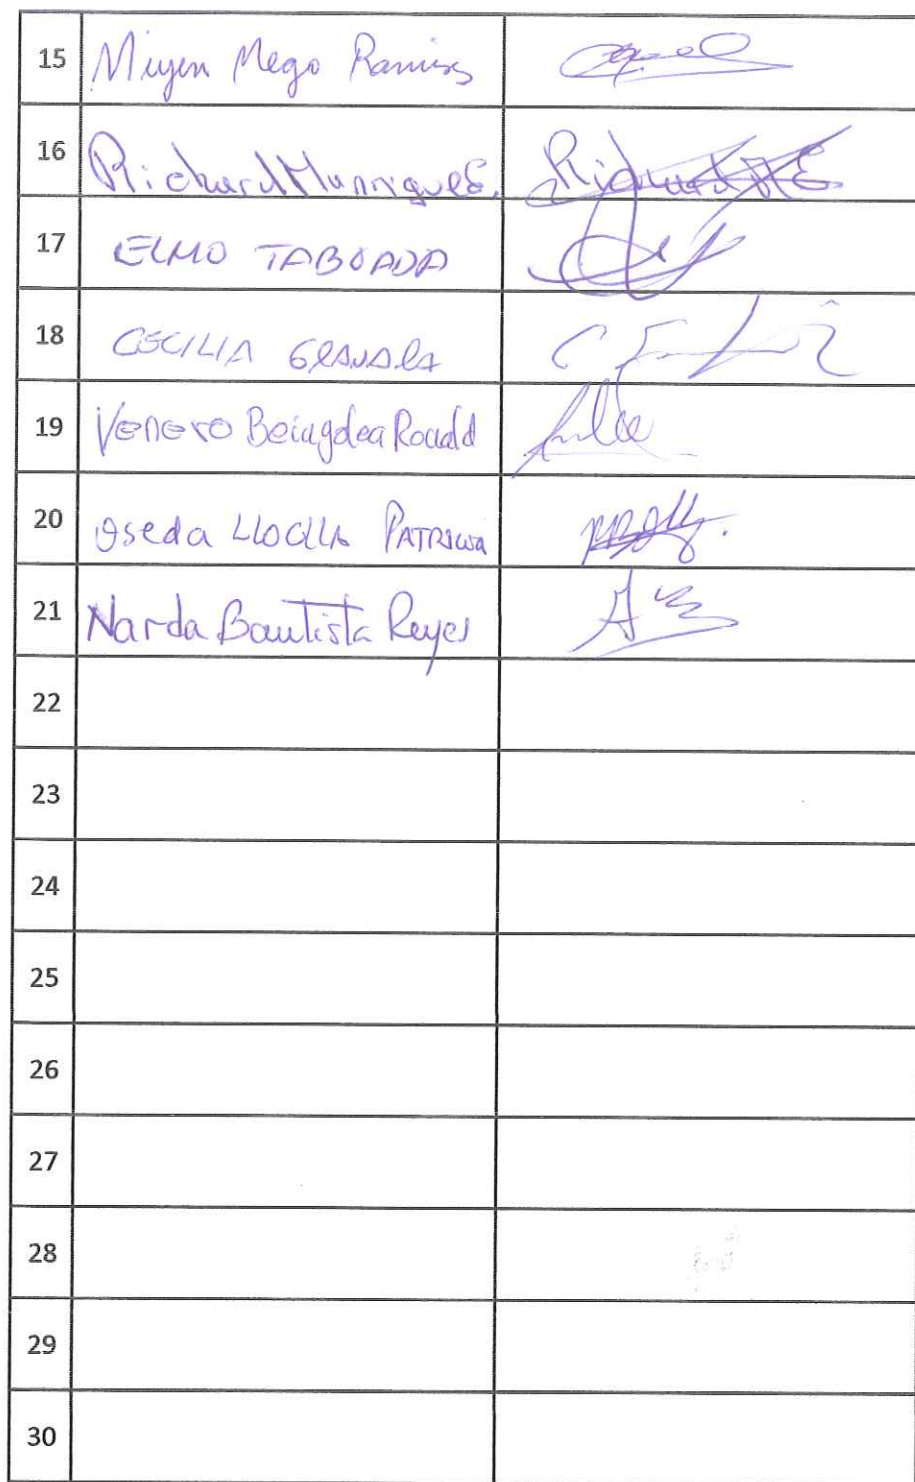 15 Miyen Mego Ramirez
16 Richard Manrique E. Richard M E
17 ELMO TABOADA
18 CECILIA GRANARA
19 Venero Beingolea Ronald
20 Oseda LLOCLLA PATRICIA
21 Narda Bautista Reyes
22
23
24
25
26
27
28
29
30